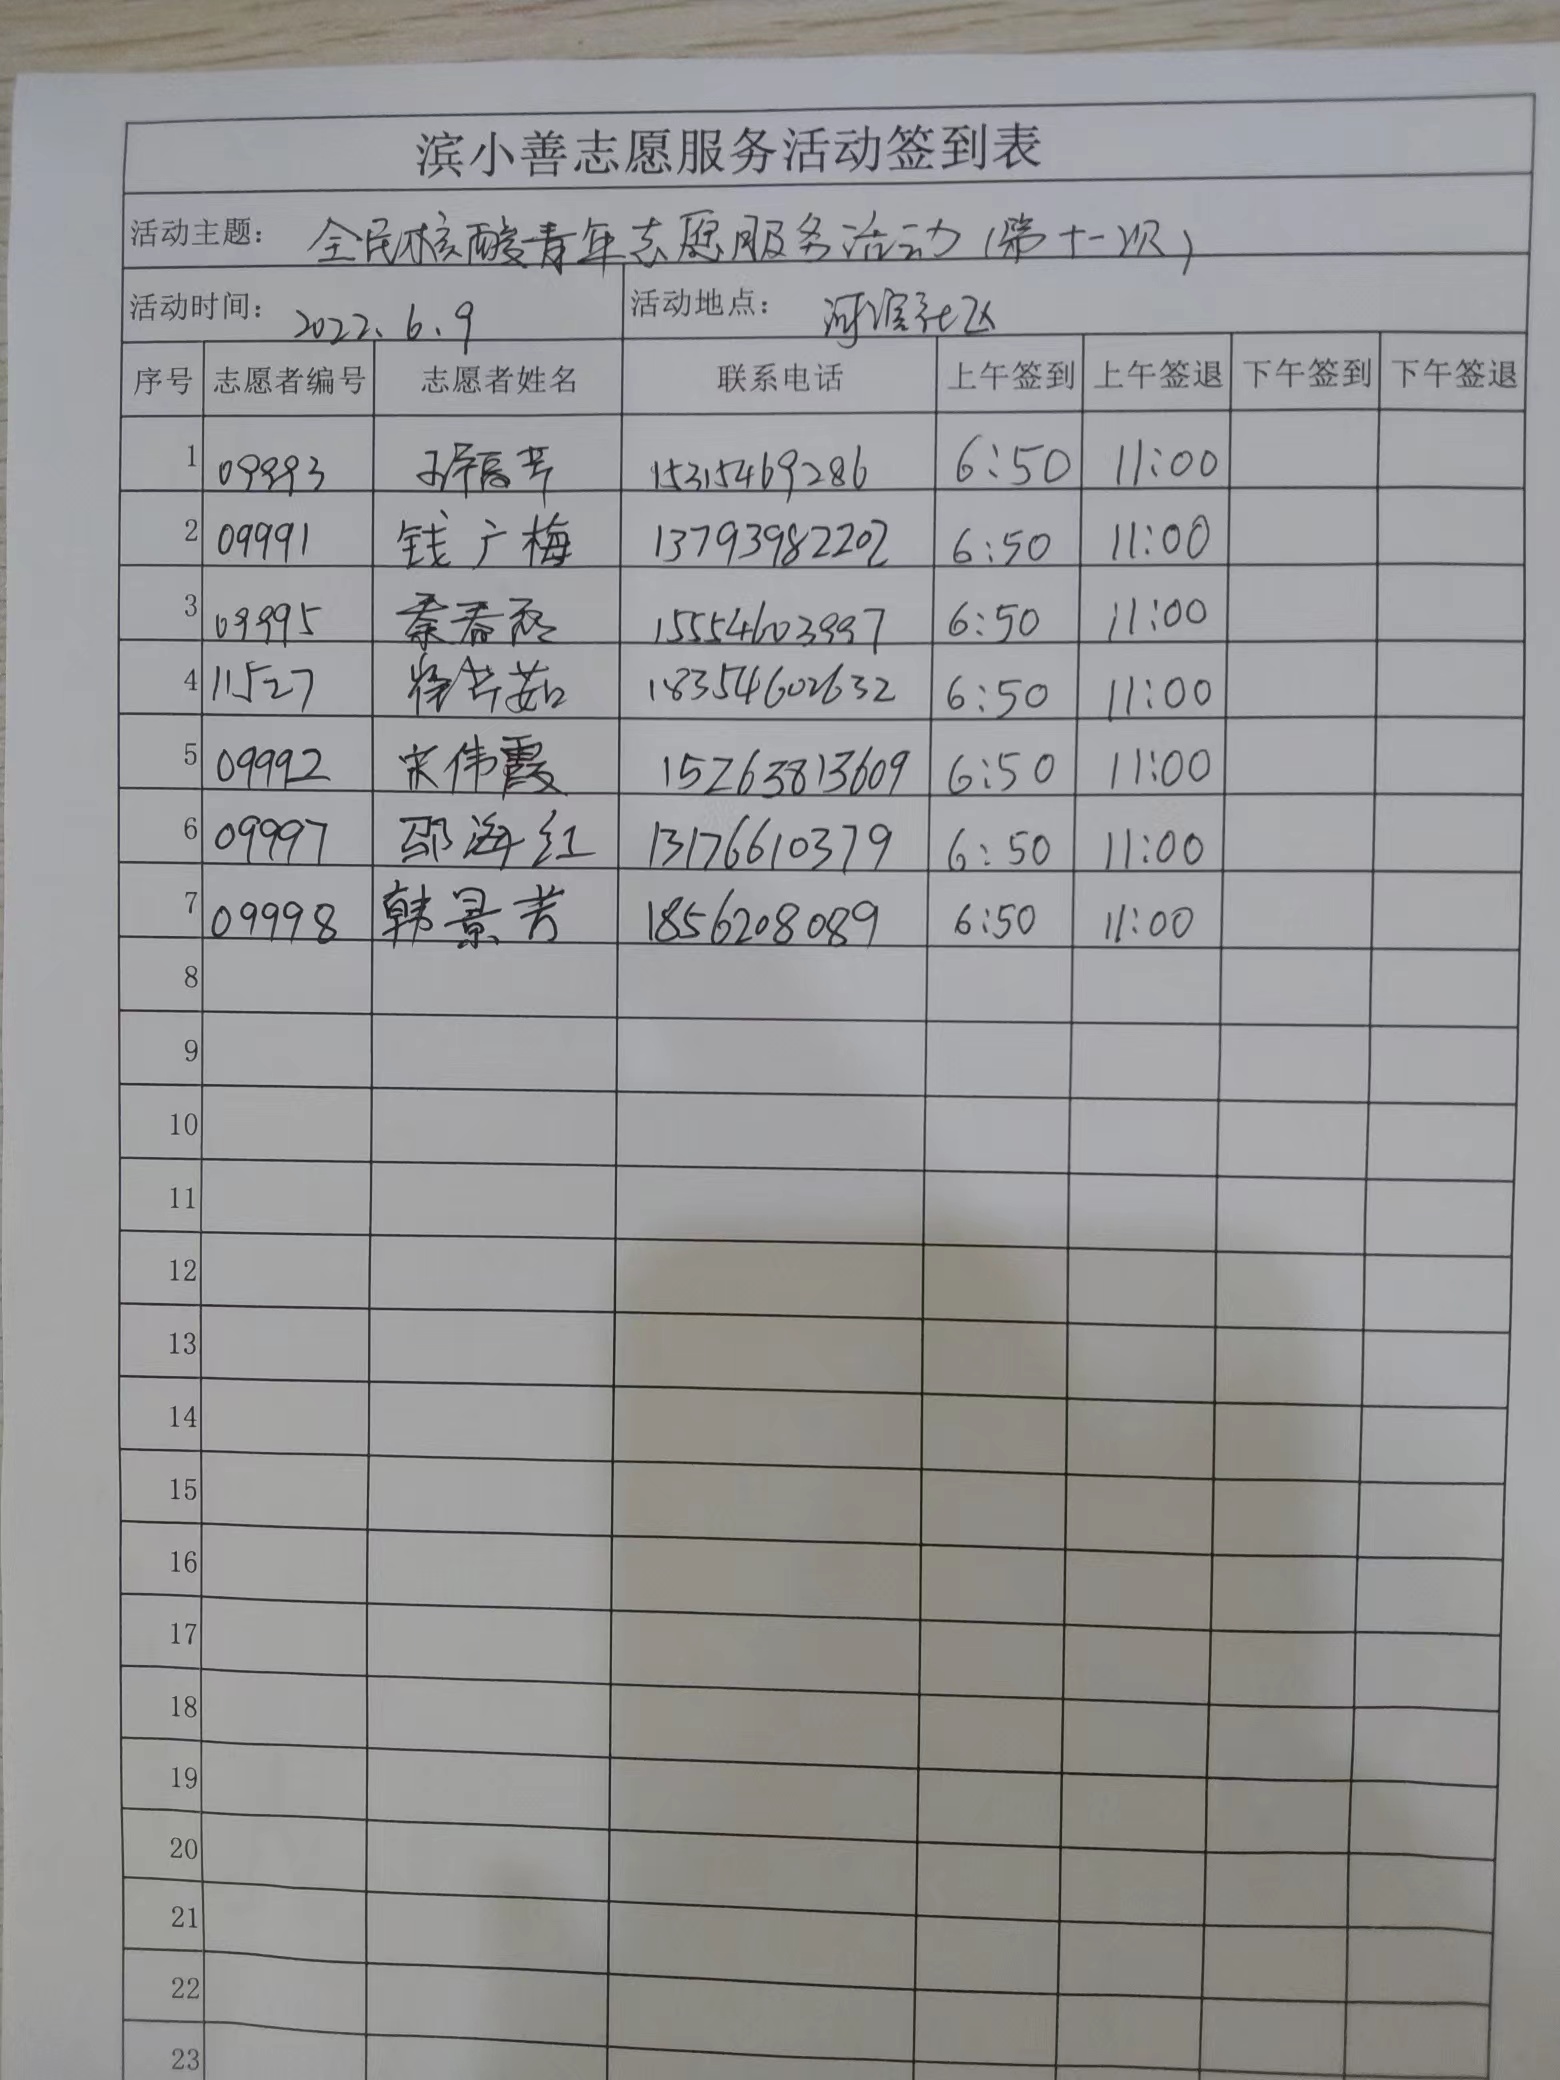 滨小善志愿服务活动签到表
活动主题: 全民核酸青年志愿服务活动(第十一次)
活动时间: 2022.6.9 活动地点: 河滨社区
序号 志愿者编号 志愿者姓名 联系电话 上午签到 上午签退 下午签到 下午签退
1 09993 15315469286 6:50 11:00
2 09991 钱广梅 13793982202 6:50 11:00
3 09995 秦春 15554603997 6:50 11:00
4 11527 徐芳茹 18354602632 6:50 11:00
5 09992 宋伟霞 15263813609 6:50 11:00
6 09997 邵海红 13176610379 6:50 11:00
7 09998 韩景芳 1856208089 6:50 11:00
8
9
10
11
12
13
14
15
16
17
18
19
20
21
22
23